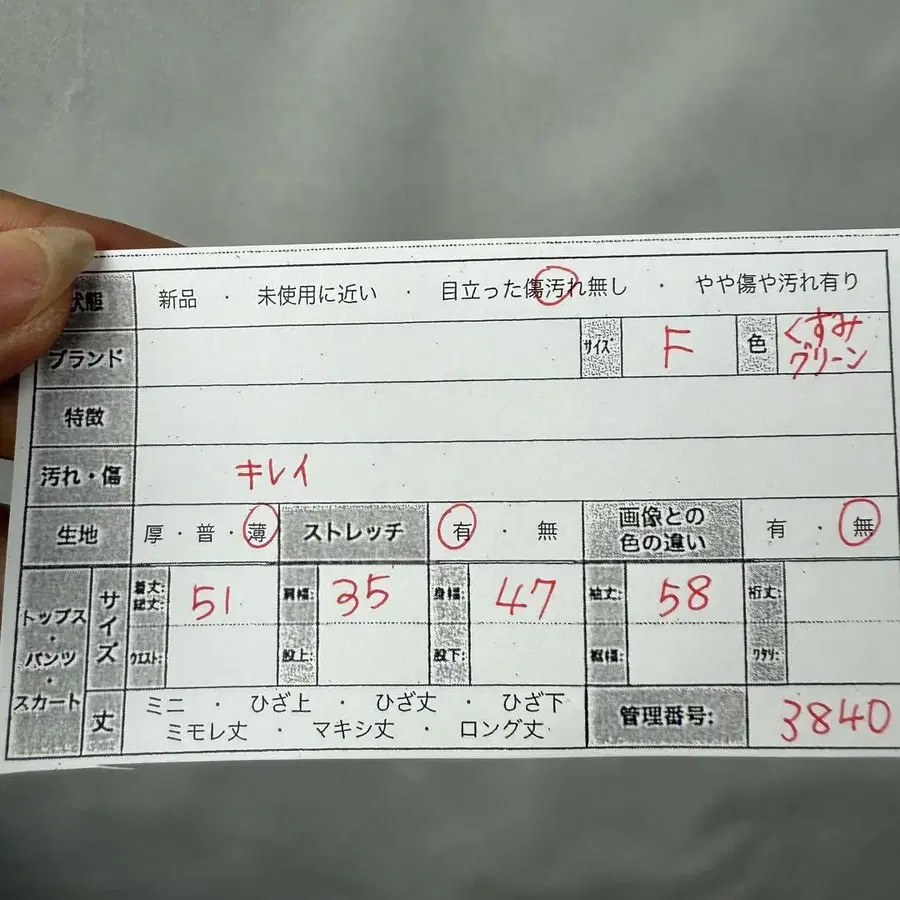 状態 新品 ・ 未使用に近い ・ 目立った傷汚れ無し ・ やや傷や汚れ有り
ブランド サイズ F 色 くすみ
グリーン
特徴
汚れ・傷 キレイ
生地 厚・普・薄 ストレッチ 有 ・ 無 画像との
色の違い 有 ・ 無
トップス
・
パンツ
・
スカート
サイズ
着丈:
総丈: 51 肩幅: 35 身幅: 47 袖丈: 58 裄丈:
ウエスト: 股上: 股下: 裾幅: ワタリ:
丈 ミニ ・ ひざ上 ・ ひざ丈 ・ ひざ下
ミモレ丈 ・ マキシ丈 ・ ロング丈
管理番号: 3840